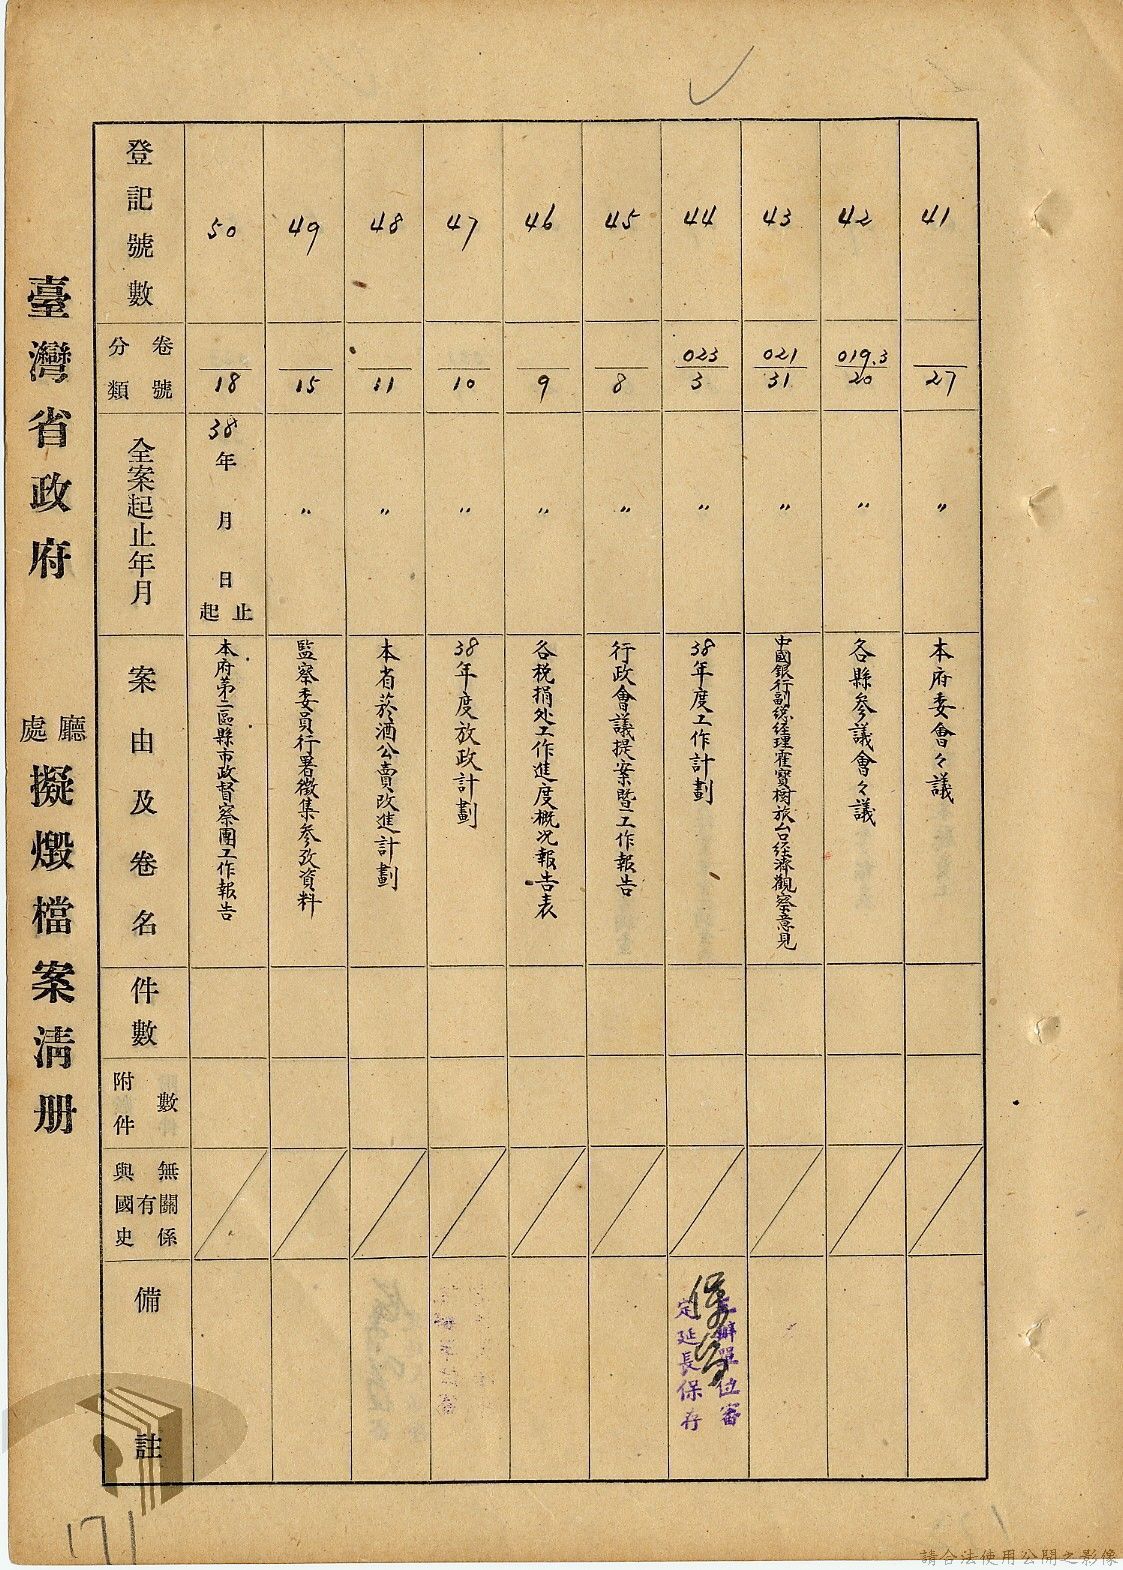 臺灣省政府 廳處 擬燬檔案清册
登記號數
分類 卷號
全案起止年月
案由及卷名
件數
附件數
與國史有無關係
備註
41
27
〃
本府委會々議
42
019.3
20
〃
各縣參議會々議
43
021
31
〃
中國銀行副總経理霍寶樹旅台経濟觀察意見
44
023
3
〃
38年度工作計劃
主辦單位審
定延長保存
保存
45
8
〃
行政會議提案暨工作報告
46
9
〃
各稅捐处工作進度概况報告表
47
10
〃
38年度放政計劃
48
11
〃
本省菸酒公賣改進計劃
49
15
〃
監察委員行署徵集參攷資料
50
18
38年 月 日起止
本府第二區縣市政督察團工作報告
171
請合法使用公開之影像